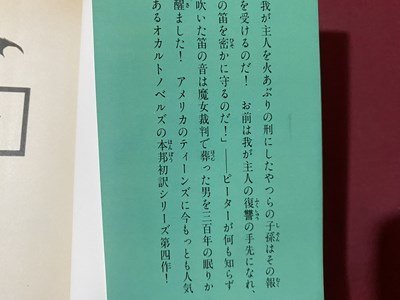 我が主人を火あぶりの刑にしたやつらの子孫はその報
を受けるのだ！　お前は我が主人の復讐の手先になれ、
の笛を密かに守るのだ！」――ピーターが何も知らず
吹いた笛の音は魔女裁判で葬った男を三百年の眠りか
醒ました！　アメリカのティーンズに今もっとも人気
あるオカルトノベルズの本邦初訳シリーズ第四作！